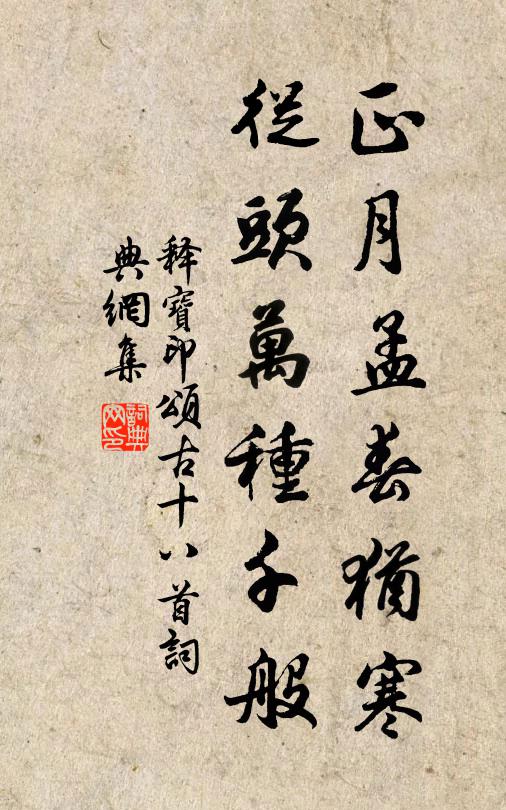 正月孟春猶寒
從頭萬種千般
释寶印頌古十八首詞
典網集
詞典
网印